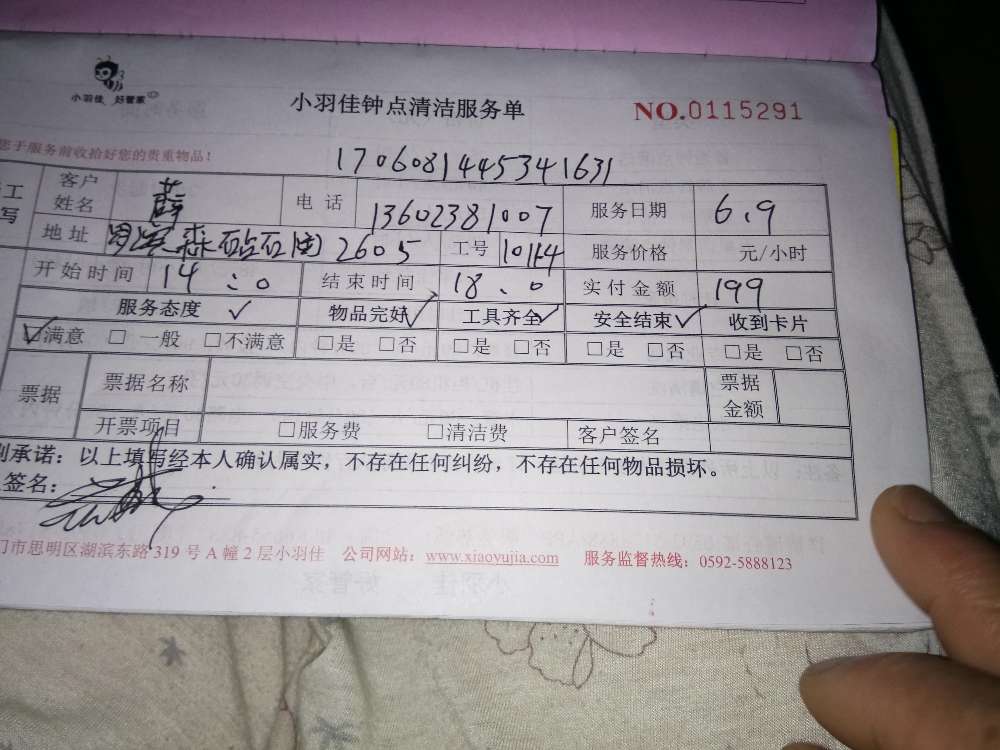 小羽佳 好管家
小羽佳钟点清洁服务单
NO.0115291
您于服务前收拾好您的贵重物品！
1706081445341631
工 客户姓名 薛 电话 13602381007 服务日期 6.9
写 地址 2605 工号 服务价格 元/小时
开始时间 14:0 结束时间 18:0 实付金额 199
服务态度 ✓ 物品完好 ✓ 工具齐全 ✓ 安全结束 ✓ 收到卡片
☑满意 □一般 □不满意 □是 □否 □是 □否 □是 □否 □是 □否
票据 票据名称 票据金额
开票项目 □服务费 □清洁费 客户签名
承诺：以上填写经本人确认属实，不存在任何纠纷，不存在任何物品损坏。
签名：
门市思明区湖滨东路 319 号 A 幢 2 层小羽佳 公司网站：www.xiaoyujia.com 服务监督热线：0592-5888123